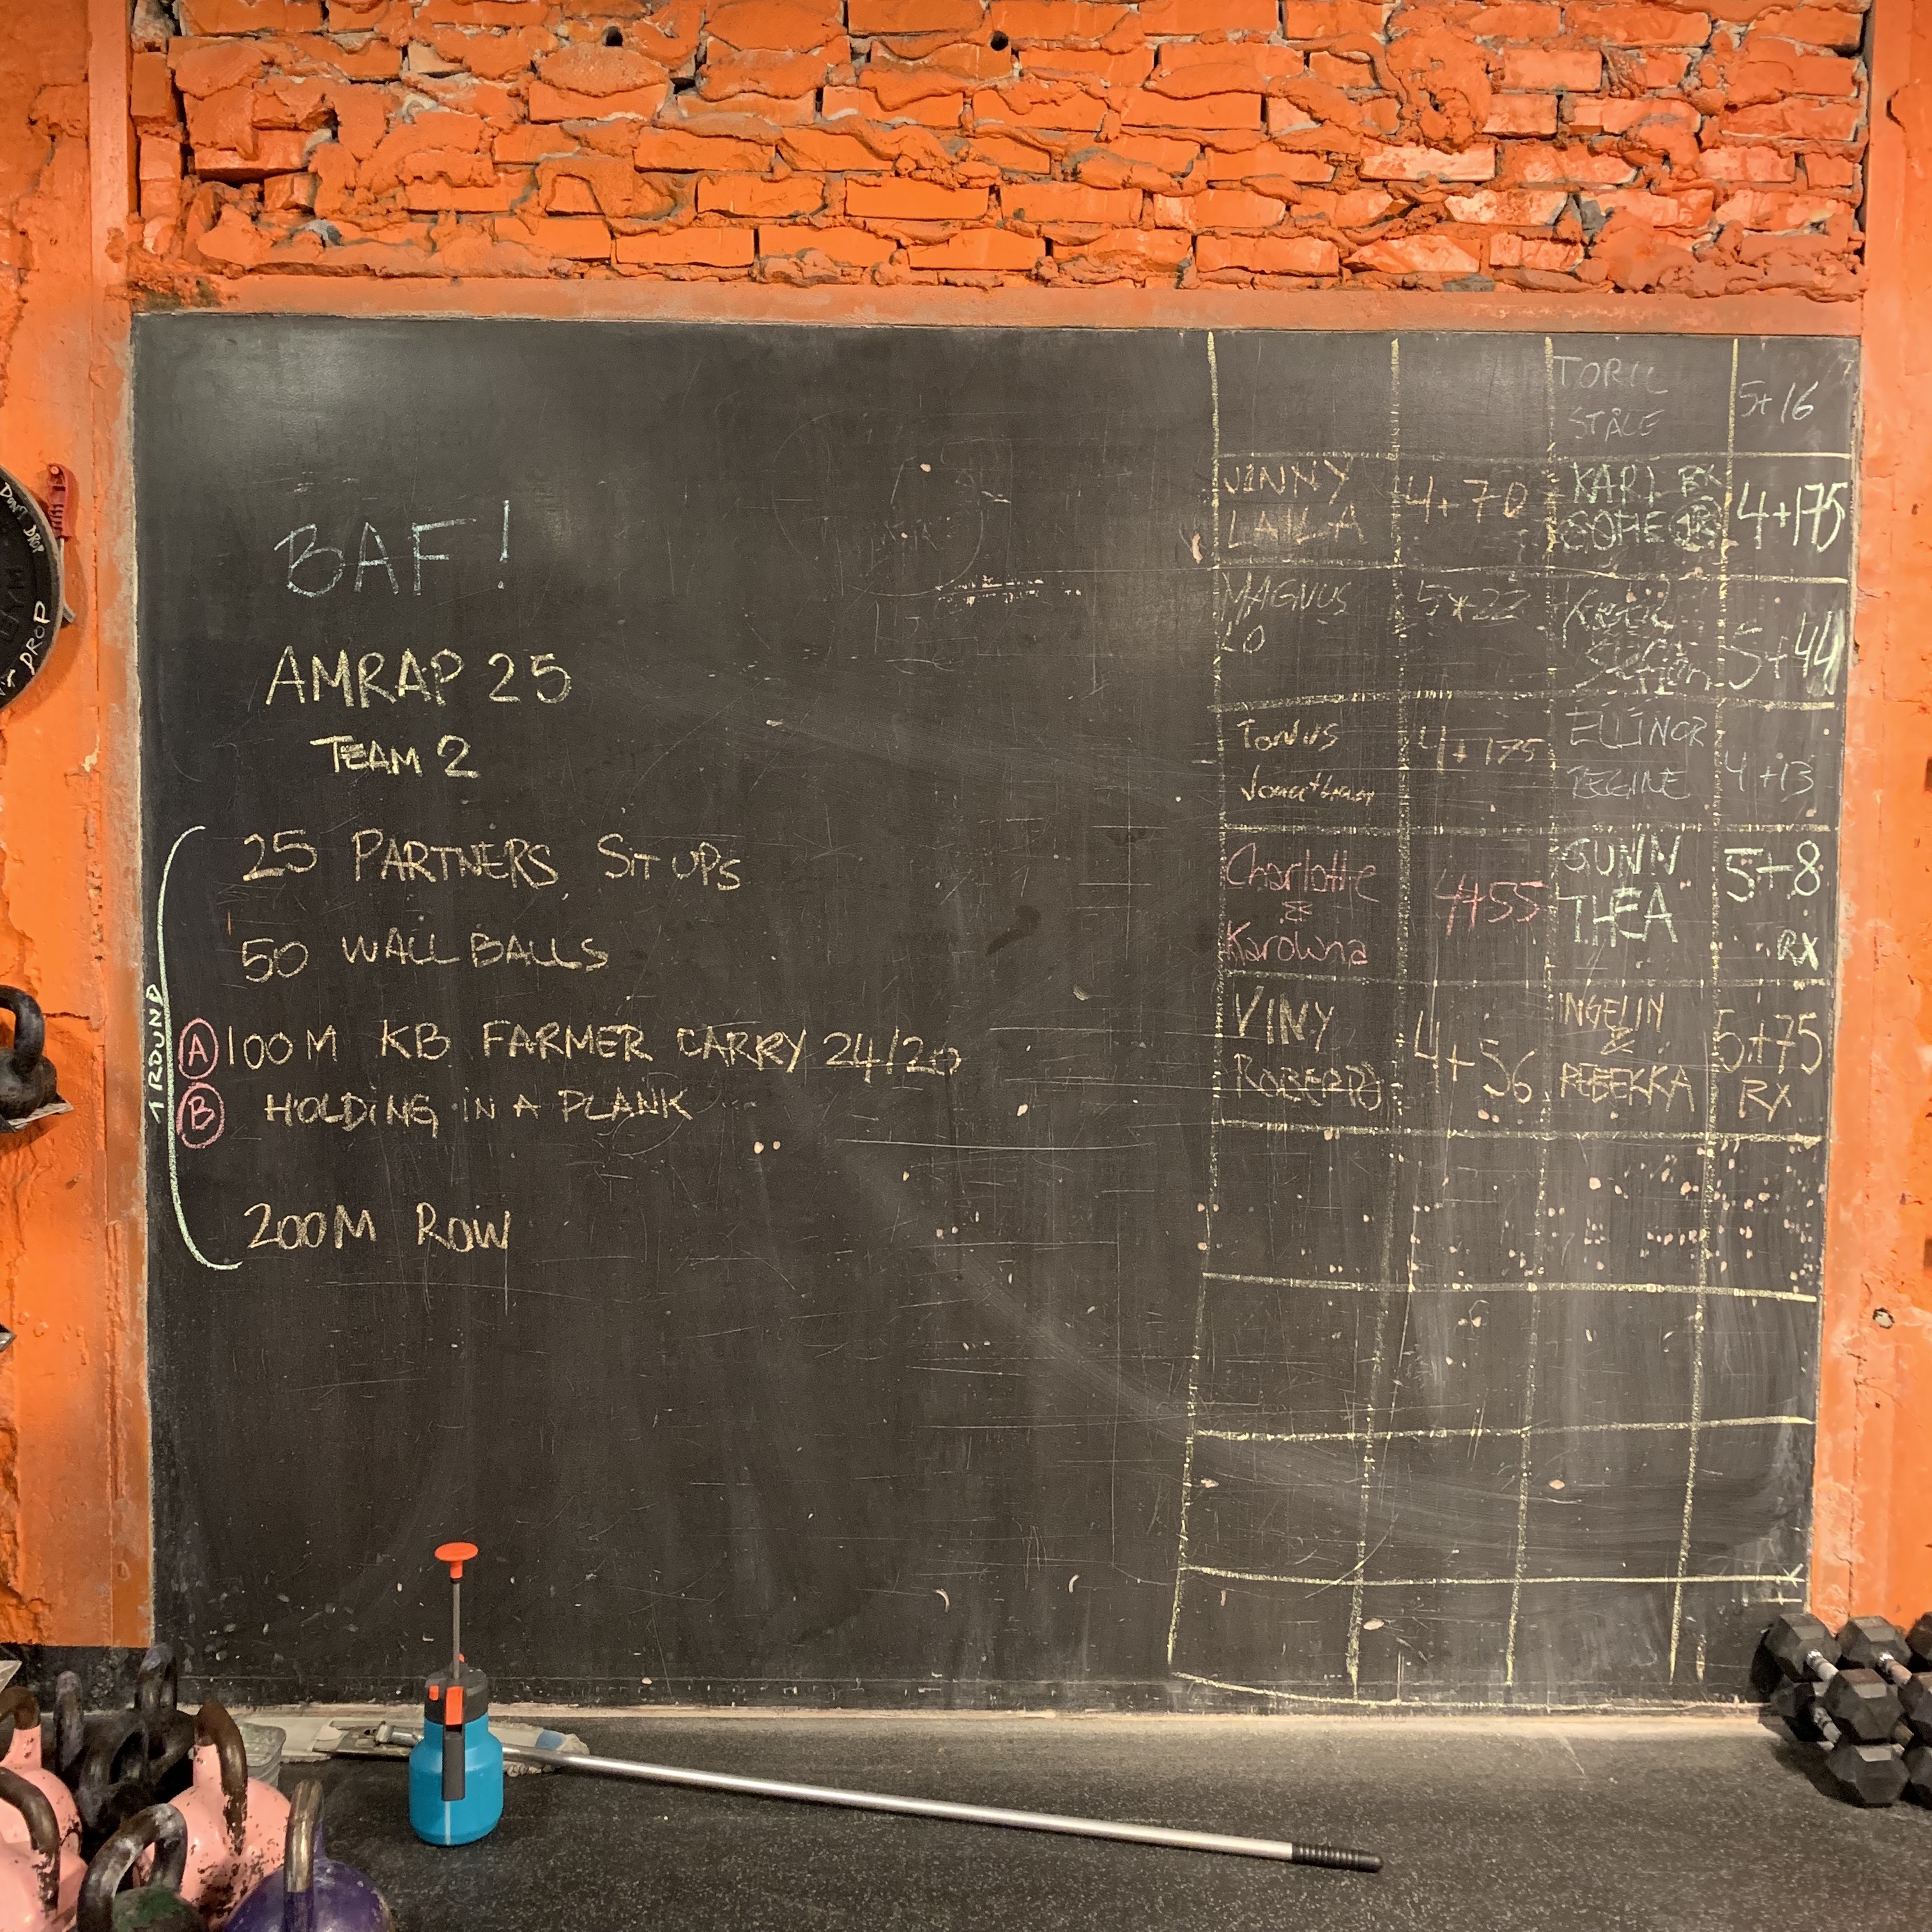 BAF!
AMRAP 25
TEAM 2
1 ROUND
25 PARTNERS SIT UPS
50 WALL BALLS
A 100M KB FARMER CARRY 24/20
B HOLDING IN A PLANK
200M ROW
TORIL
STÅLE
5+16
JINNY
LAILA
4+70
KARI RX
4+175
MAGNUS
LO
5+22
5+44
Jonathan
4+175
ELLINOR
REGINE
4+13
Charlotte
&
Karowna
4+55
GUNN
THEA
5+8
RX
VINY
ROBERTO
4+56
INGELIN
&
REBEKKA
5+75
RX
DON'T DROP
DROP